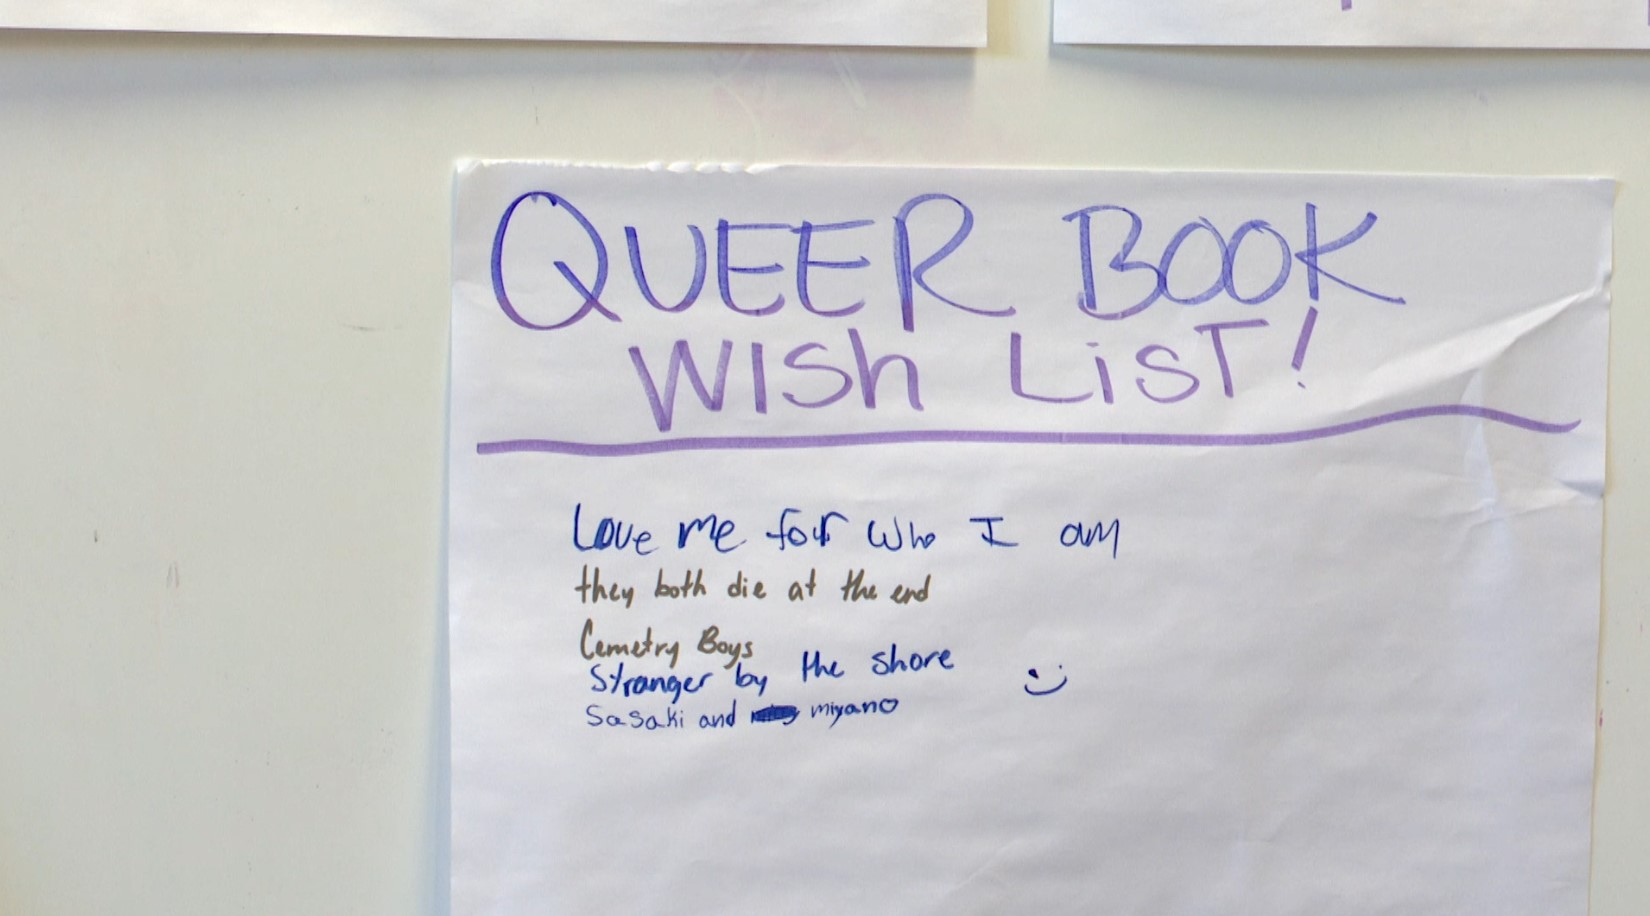 QUEER BOOK
WISh LiST!
Love me for who I am
they both die at the end
Cemetry Boys
Stranger by the shore
Sasaki and miyano